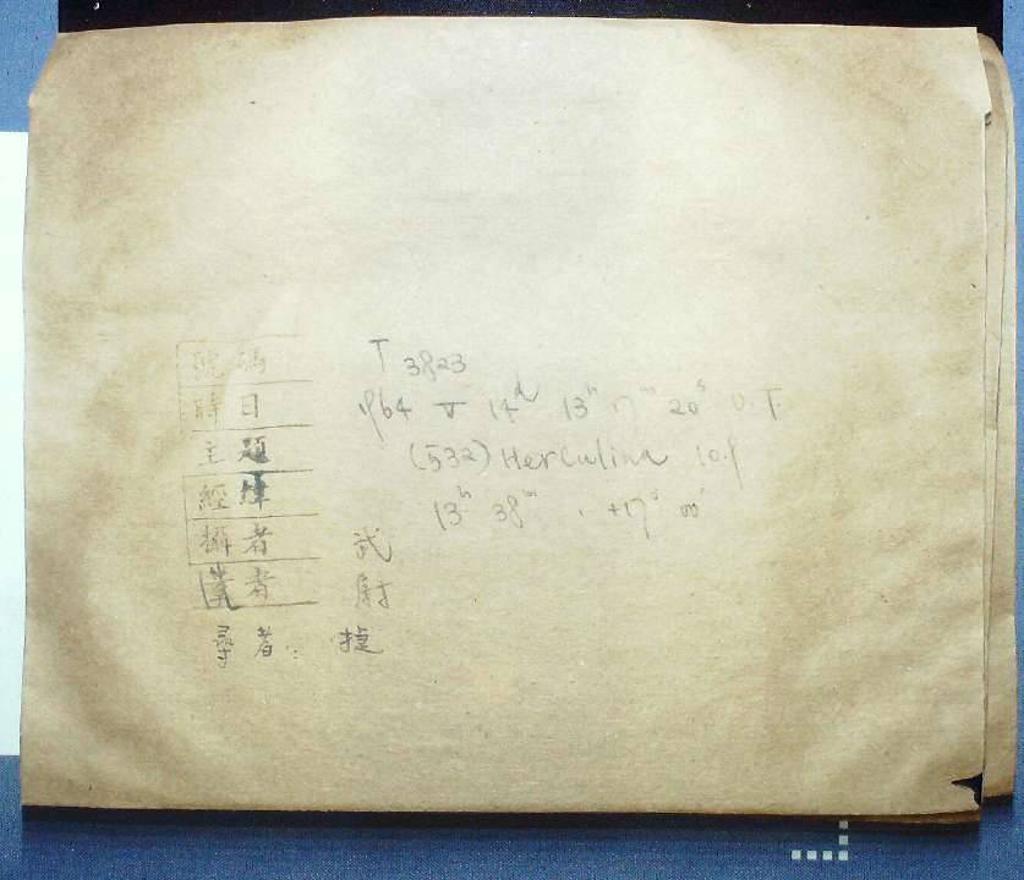 號碼 T 3823
時日 1964 V 14d 13h 17m 20s U.T
主題 (532) Herculina 10.1
經緯 13h 38m , +17° 00'
攝者 武
者
尋者: 捷